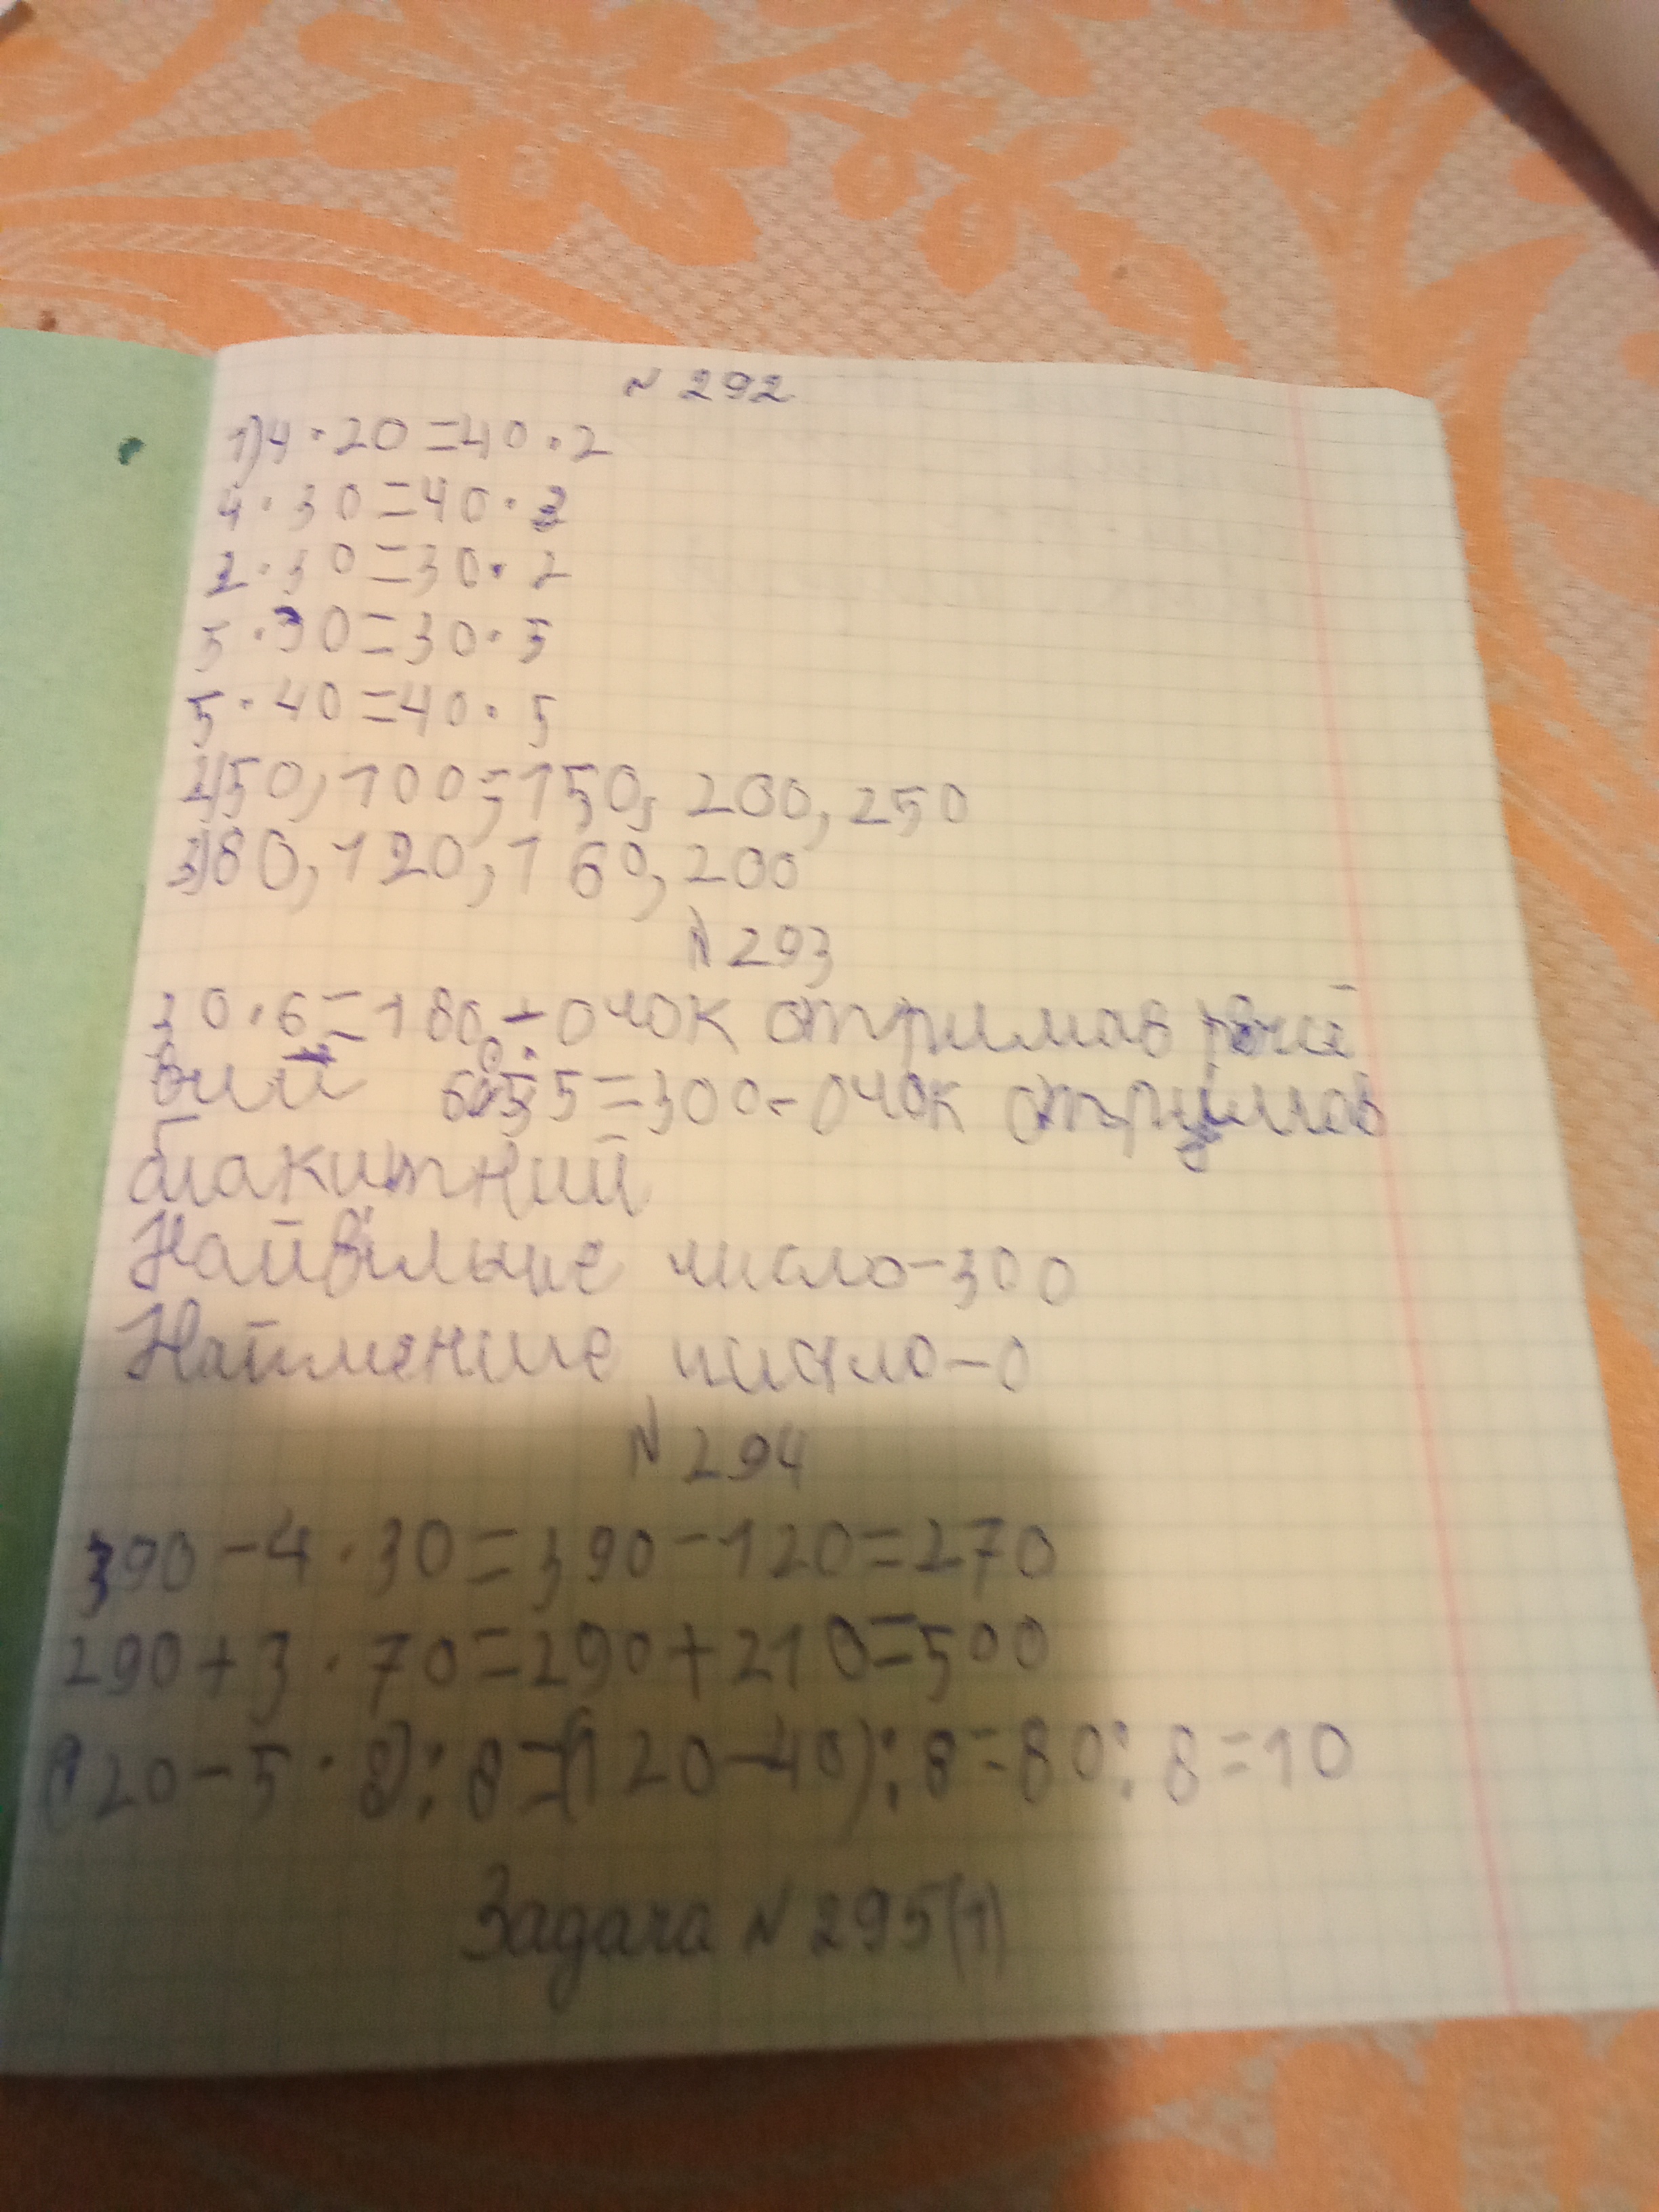 № 292
1) 4 · 20 = 40 · 2
4 · 30 = 40 · 3
2 · 30 = 30 · 2
5 · 30 = 30 · 5
5 · 40 = 40 · 5
2) 50, 100, 150, 200, 250
3) 80, 120, 160, 200
№ 293
30 · 6 = 180 - очок отримав
60 · 5 = 300 - очок отримав
блакитний
Найбільше число - 300
Найменше число - 0
№ 294
390 - 4 · 30 = 390 - 120 = 270
290 + 3 · 70 = 290 + 210 = 500
(120 - 5 · 8) : 8 = (120 - 40) : 8 = 80 : 8 = 10
Задача № 295(1)